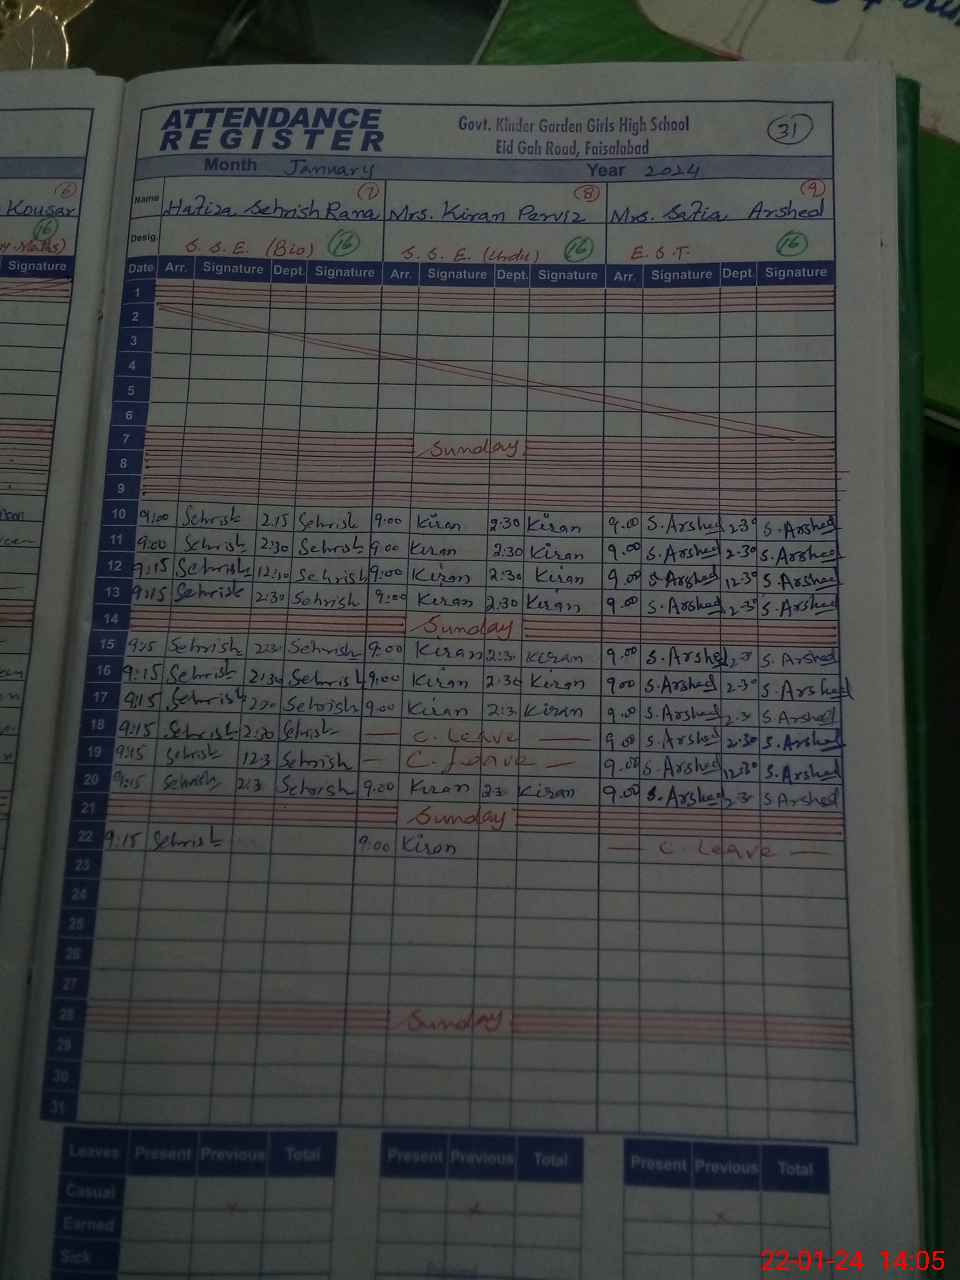 ATTENDANCE
REGISTER
Govt. Kinder Garden Girls High School
Eid Gah Road, Faisalabad
31
Month January Year 2024
6 7 8 9
Kousar Name Hafiza Sehrish Rana Mrs. Kiran Perviz Mrs. Safia Arshed
16 Desig. S. S. E. (Bio) 16 S. S. E. (Urdu) 16 E. S. T. 16
Signature Date Arr. Signature Dept. Signature Arr. Signature Dept. Signature Arr. Signature Dept. Signature
1
2
3
4
5
6
7 Sunday
8
9
10 9:00 Sehrish 2:15 Sehrish 9:00 Kiran 2:30 Kiran 9.00 S.Arshed 2.30 S.Arshed
11 9:00 Sehrish 2:30 Sehrish 9:00 Kiran 2:30 Kiran 9.00 S.Arshed 2.30 S.Arshed
12 9:15 Sehrish 12:30 Sehrish 9:00 Kiran 2:30 Kiran 9.00 S.Arshed 12.30 S.Arshed
13 9:15 Sehrish 2:30 Sehrish 9:00 Kiran 2:30 Kiran 9.00 S.Arshed 2.30 S.Arshed
14 Sunday
15 9:15 Sehrish 2:3 Sehrish 9:00 Kiran 2:3 Kiran 9.00 S.Arshed 2.3 S.Arshed
16 9:15 Sehrish 2:30 Sehrish 9:00 Kiran 2:30 Kiran 9.00 S.Arshed 2.30 S.Arshed
17 9:15 Sehrish Sehrish 9:00 Kiran 2:3 Kiran 9.00 S.Arshed 2.3 S.Arshed
18 9:15 Sehrish 2:30 Sehrish — C. Leave — 9.00 S.Arshed 2.30 S.Arshed
19 9:15 Sehrish 12:3 Sehrish — C. Leave — 9.00 S.Arshed 12.30 S.Arshed
20 9:15 Sehrish 2:3 Sehrish 9:00 Kiran 2:3 Kiran 9.00 S.Arshed 2.3 S.Arshed
21 Sunday
22 9:15 Sehrish 9:00 Kiran — C. Leave —
23
24
25
26
27
28 Sunday
29
30
31
Leaves Present Previous Total Present Previous Total Present Previous Total
Casual
Earned
Sick
22-01-24 14:05